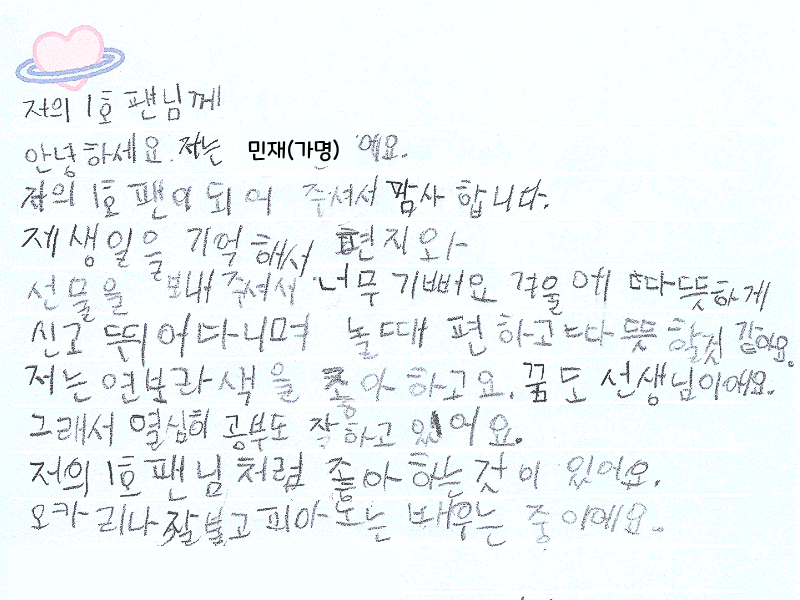 저의 1호 팬님께
안녕하세요. 저는 민재(가명) 예요.
저의 1호 팬이 되어 주셔서 감사 합니다.
제 생일을 기억해서 편지와
선물을 보내 주셔서 너무 기뻐요 겨울에 따뜻하게
신고 뛰어다니며 놀때 편하고 따뜻 할것 같아요.
저는 연보라색을 좋아 하고요. 꿈도 선생님이에요.
그래서 열심히 공부도 잘하고 있어요.
저의 1호 팬님처럼 좋아하는것이 있어요.
오카리나 잘불고 피아노는 배우는 중이에요.